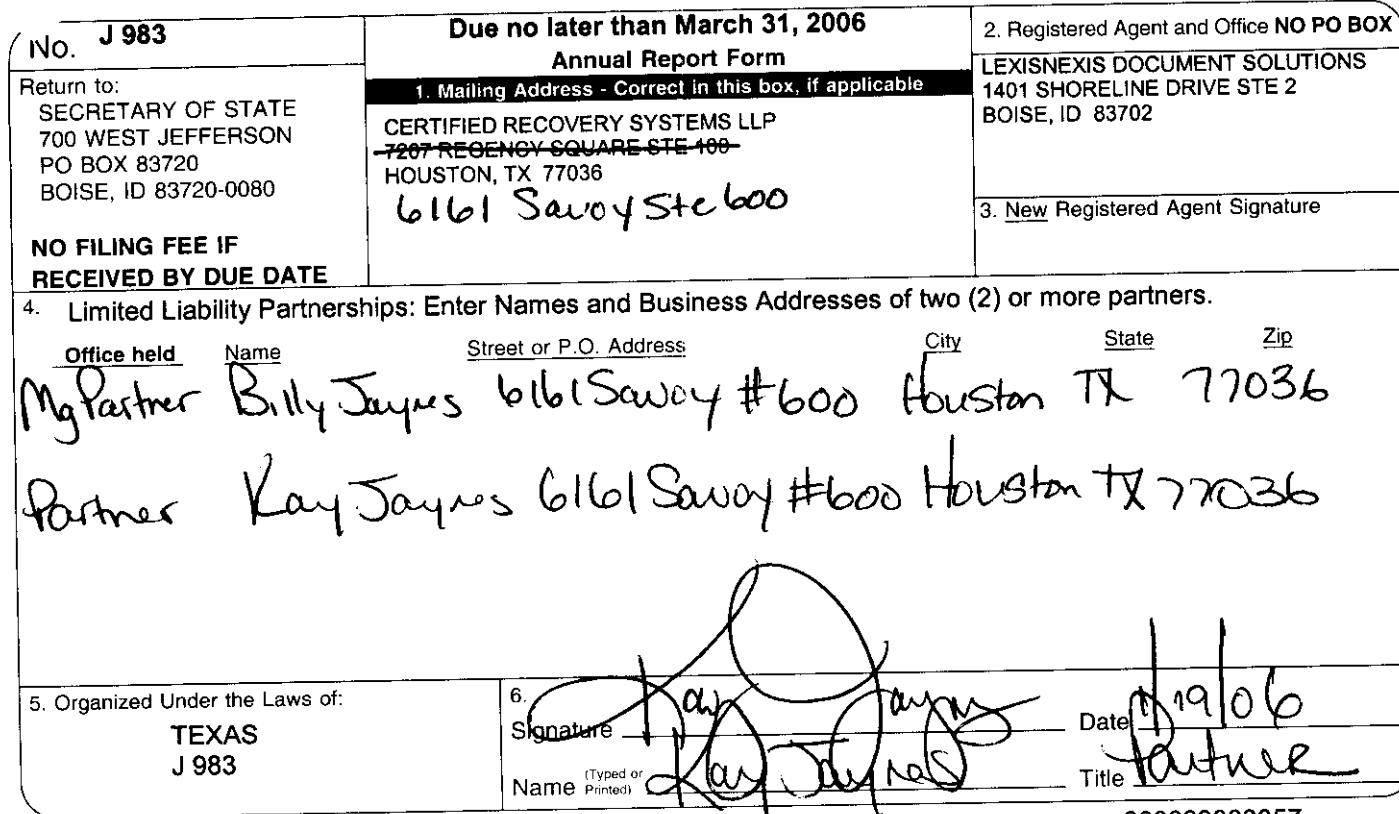 No. J 983
Return to:
SECRETARY OF STATE
700 WEST JEFFERSON
PO BOX 83720
BOISE, ID 83720-0080
NO FILING FEE IF
RECEIVED BY DUE DATE
Due no later than March 31, 2006
Annual Report Form
1. Mailing Address - Correct in this box, if applicable
CERTIFIED RECOVERY SYSTEMS LLP
7207 REGENCY SQUARE STE 100
HOUSTON, TX 77036
6161 Savoy Ste 600
2. Registered Agent and Office NO PO BOX
LEXISNEXIS DOCUMENT SOLUTIONS
1401 SHORELINE DRIVE STE 2
BOISE, ID 83702
3. New Registered Agent Signature
4. Limited Liability Partnerships: Enter Names and Business Addresses of two (2) or more partners.
Office held Name Street or P.O. Address City State Zip
Mg Partner Billy Jaynes 6161 Savoy #600 Houston TX 77036
Partner Kay Jaynes 6161 Savoy #600 Houston TX 77036
5. Organized Under the Laws of:
TEXAS
J 983
6.
Signature Kay Jaynes Date 1/19/06
Name (Typed or Printed) Kay Jaynes Title Partner